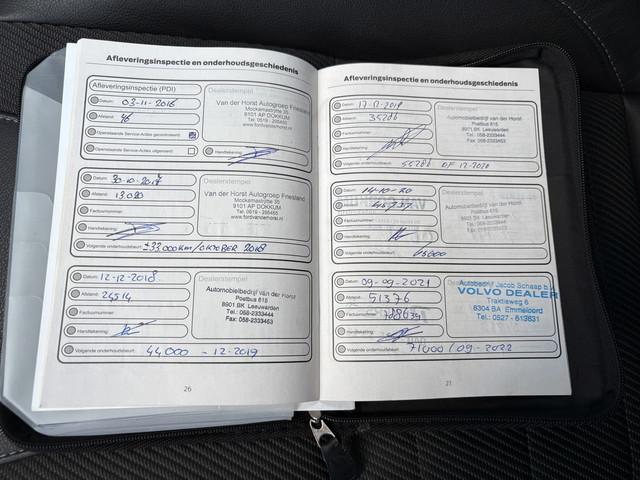 Afleveringsinspectie en onderhoudsgeschiedenis
Afleveringsinspectie (PDI)
Datum: 03-11-2016
Afstand: 46
Openstaande Service-Acties gecontroleerd:
Openstaande Service-Acties uitgevoerd:
Dealerstempel
Van der Horst Autogroep Friesland
Mockamastrjitte 35
9101 AP DOKKUM
Tel. 0519 - 295455
www.fordvanderhorst.nl
Handtekening:
Datum: 30-10-2017
Afstand: 13.020
Factuurnummer:
Handtekening:
Dealerstempel
Van der Horst Autogroep Friesland
Mockamastrjitte 35
9101 AP DOKKUM
Tel. 0519 - 295455
www.fordvanderhorst.nl
Volgende onderhoudsbeurt: ±33000km/OKTOBER 2018
Datum: 12-12-2018
Afstand: 24514
Factuurnummer:
Handtekening:
Dealerstempel
Automobielbedrijf Van der Horst
Postbus 615
8901 BK Leeuwarden
Tel.: 058-2333444
Fax: 058-2333453
Volgende onderhoudsbeurt: 44.000 - 12-2019
26
Afleveringsinspectie en onderhoudsgeschiedenis
Datum: 17-12-2019
Afstand: 35286
Factuurnummer:
Handtekening:
Dealerstempel
Automobielbedrijf van der Horst
Postbus 615
8901 BK Leeuwarden
Tel.: 058-2333444
Fax: 058-2333453
Volgende onderhoudsbeurt: 55286 OF 12-2020
Datum: 14-10-20
Afstand:
Factuurnummer:
Handtekening:
Dealerstempel
Automobielbedrijf van der Horst
Postbus 615
8901 BK Leeuwarden
Volgende onderhoudsbeurt:
Datum: 09-09-2021
Afstand: 51376
Factuurnummer:
Handtekening:
Dealerstempel
Autobedrijf Jacob Schaap b.v.
VOLVO DEALER
Traktieweg 6
8304 BA Emmeloord
Tel.: 0527 - 613631
Volgende onderhoudsbeurt: 71000/09-2022
27